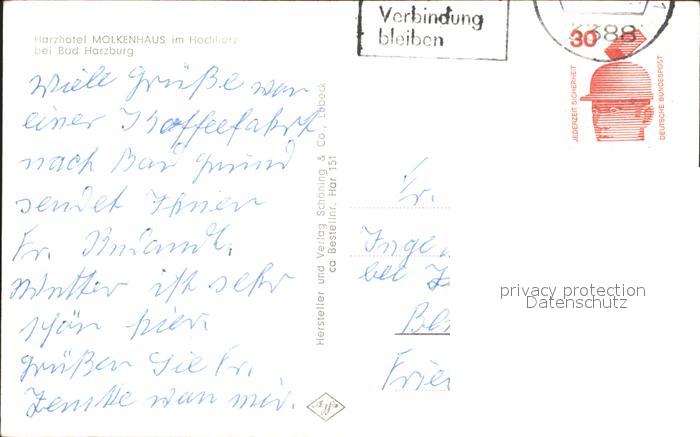 Harzhotel MOLKENHAUS im Hochharz
bei Bad Harzburg
Viele Grüße von
einer Kaffeefahrt
nach Bad Grund
sendet Ihnen
Fr.
Wetter ist sehr
schön hier.
grüßen Sie Fr.
von mir.
Hersteller und Verlag Schöning & Co., Lübeck
ca Bestellnr. Har 151
Verbindung
bleiben
3388
30
JEDERZEIT SICHERHEIT
DEUTSCHE BUNDESPOST
Fr.
Inge
bei
privacy protection
Datenschutz